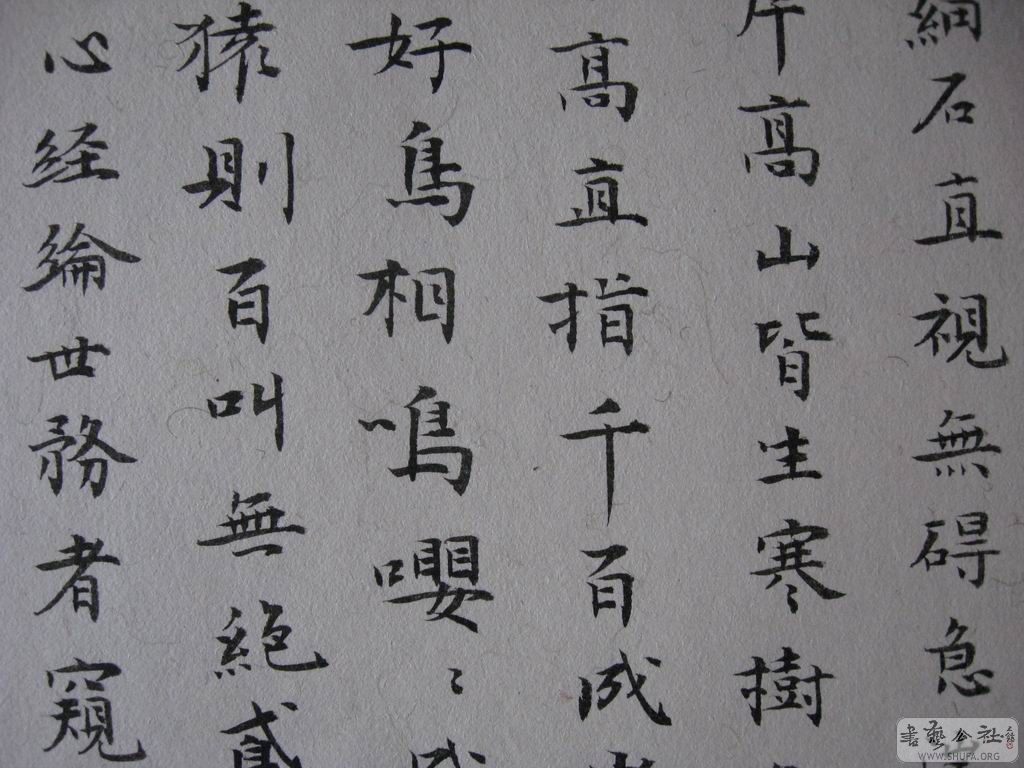 細石直視無碍急
岸高山皆生寒樹
高直指千百成
好鳥相鳴嚶〻成
猿則百叫無絕鳶
心経綸世務者窺
書藝公社
WWW.SHUFA.ORG